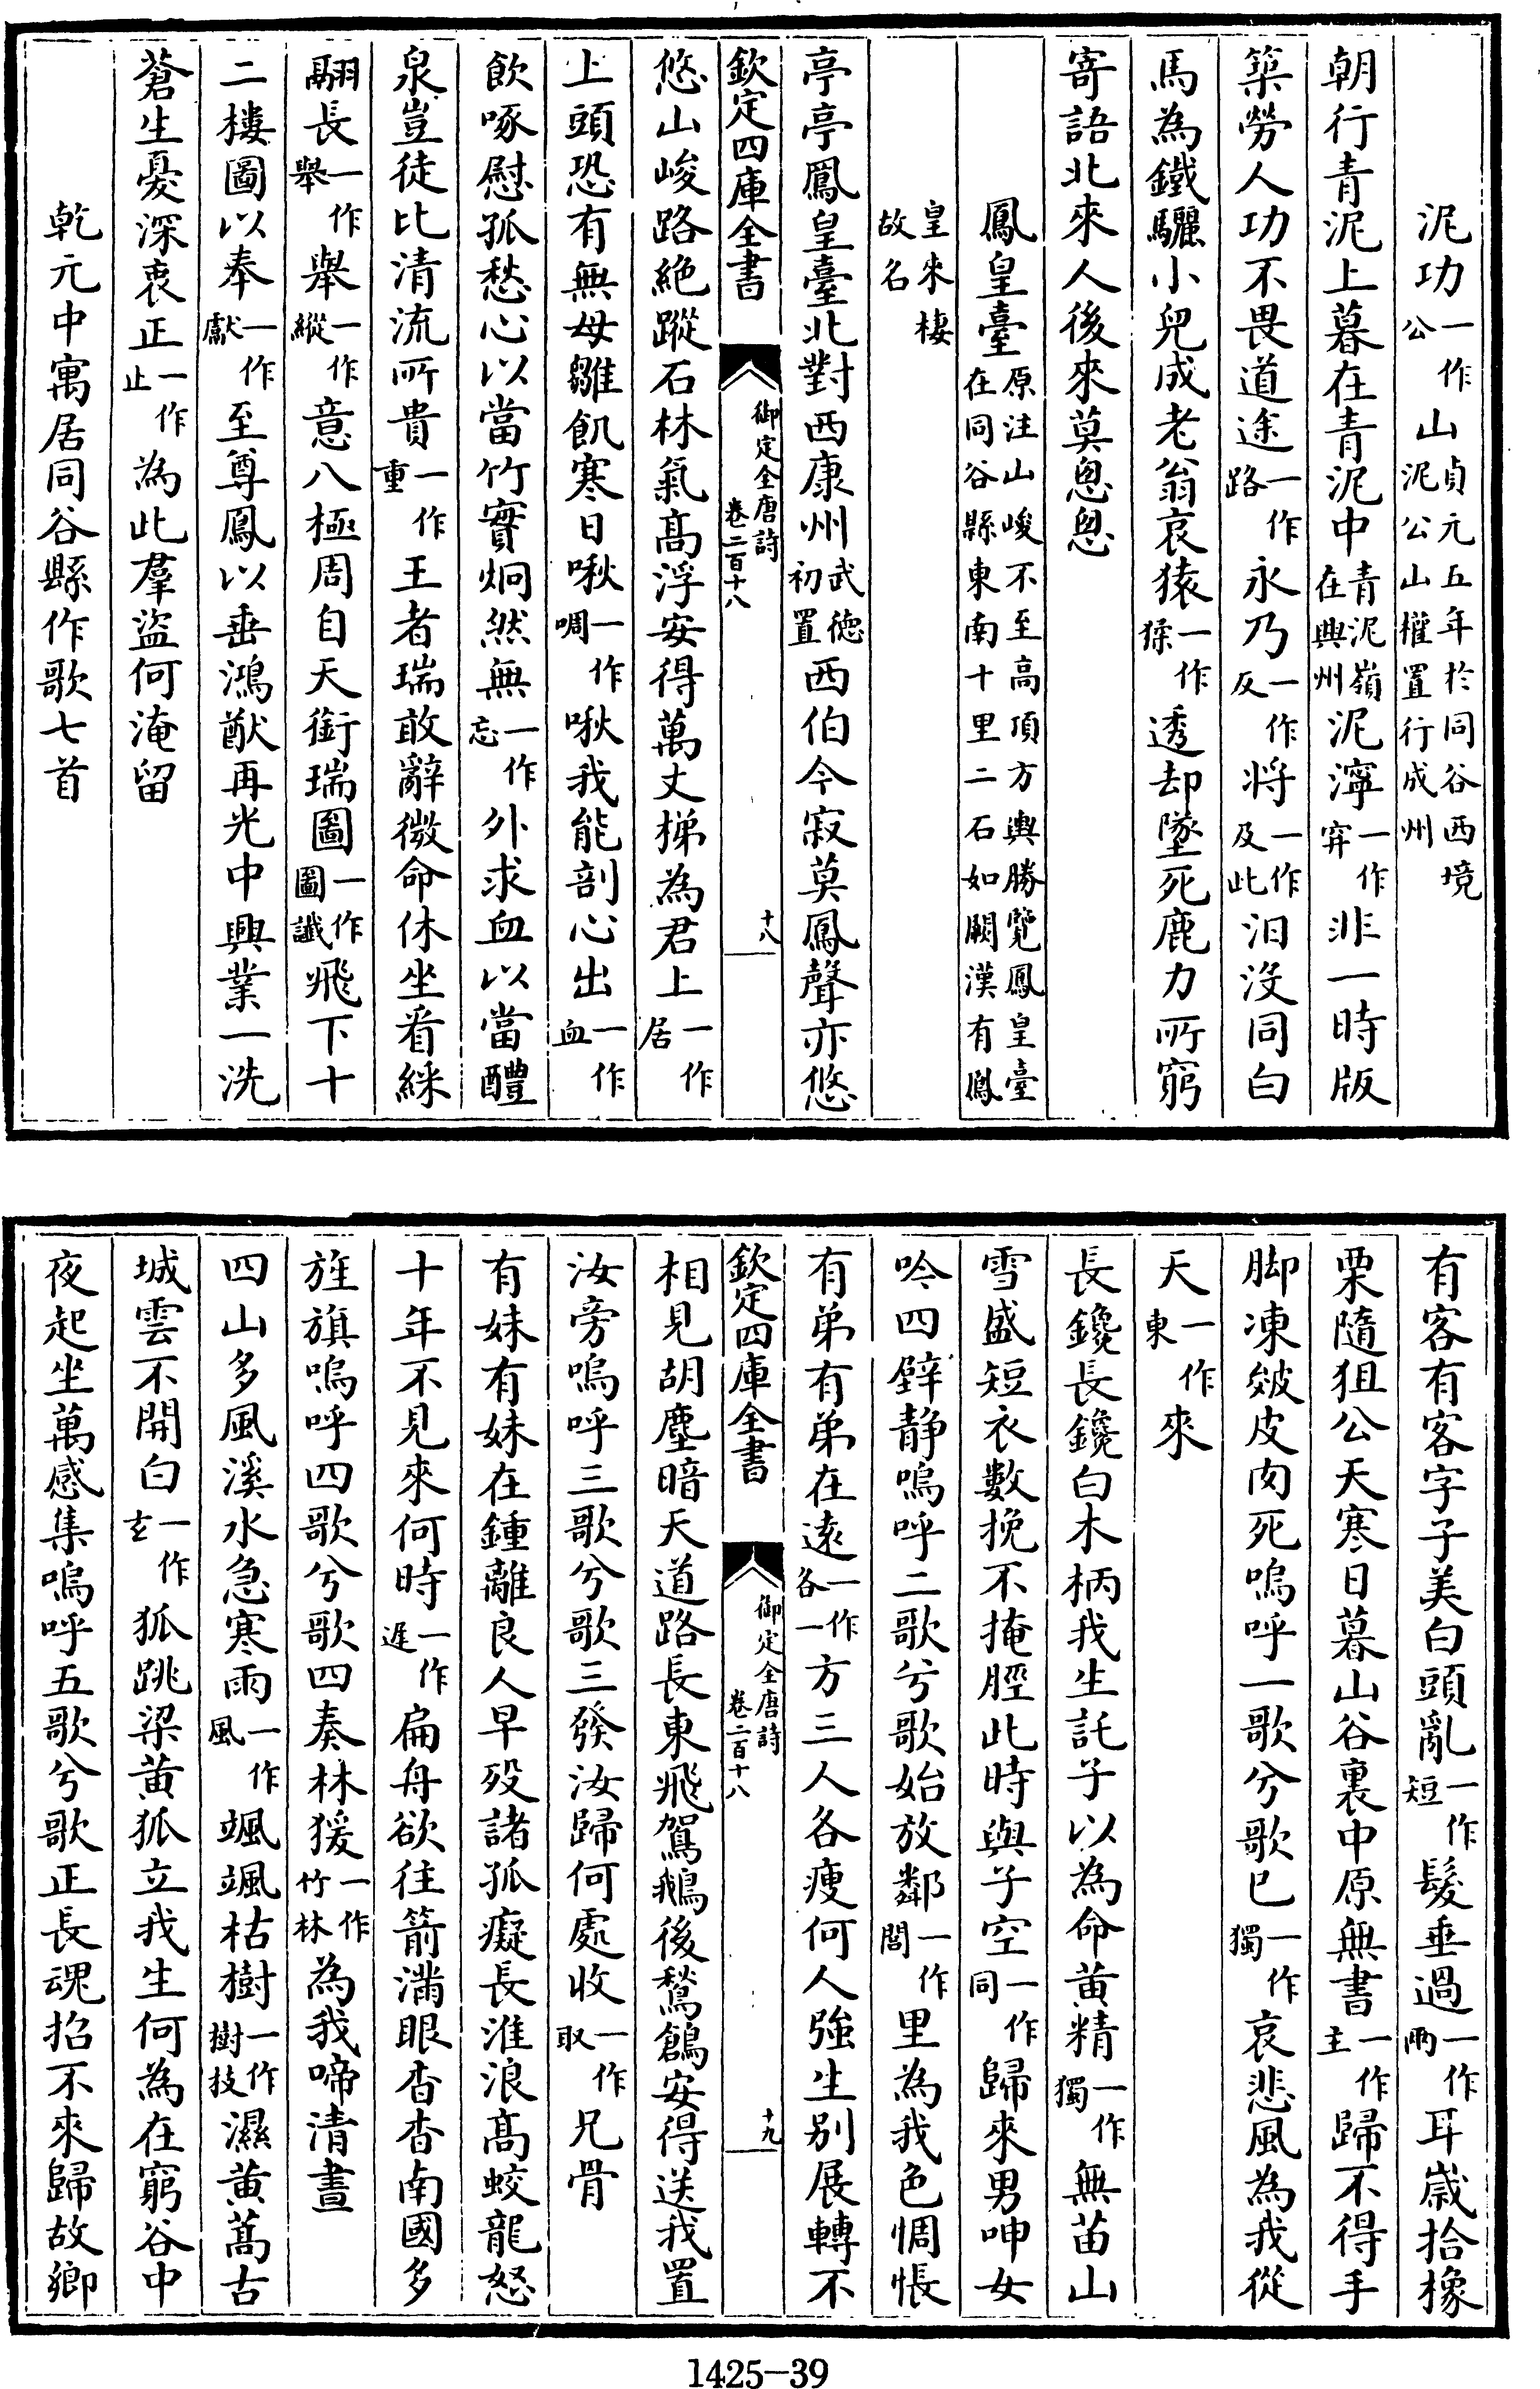 泥功一作公山貞元五年於同谷西境泥公山權置行成州
朝行青泥上暮在青泥中青泥嶺在興州泥濘一作穽非一時版
築勞人功不畏道途一作路永乃一作反將一作及此汩沒同白
馬為鐵驪小兒成老翁哀猿一作猱透却墜死鹿力所窮
寄語北來人後來莫悤悤
鳳皇臺原注山峻不至高頂方輿勝覽鳳皇臺在同谷縣東南十里二石如闕漢有鳳
皇來棲故名
亭亭鳳皇臺北對西康州武德初置西伯今寂莫鳳聲亦悠
欽定四庫全書 御定全唐詩卷二百十八 十八
悠山峻路絕蹤石林氣高浮安得萬丈梯為君上一作居
上頭恐有無母雛飢寒日啾一作啁啾我能剖心出一作血
飲啄慰孤愁心以當竹實炯然無一作忘外求血以當醴
泉豈徒比清流所貴一作重王者瑞敢辭微命休坐看綵
翮長一作舉舉一作縱意八極周自天銜瑞圖一作圖讖飛下十
二樓圖以奉一作獻至尊鳳以垂鴻猷再光中興業一洗
蒼生憂深衷正一作止為此羣盜何淹留
乾元中寓居同谷縣作歌七首
有客有客字子美白頭亂一作短髮垂過一作兩耳歲拾橡
栗隨狙公天寒日暮山谷裏中原無書一作主歸不得手
脚凍皴皮肉死嗚呼一歌兮歌已一作獨哀悲風為我從
天一作東來
長鑱長鑱白木柄我生託子以為命黄精一作獨無苗山
雪盛短衣數挽不掩脛此時與子空一作同歸來男呻女
吟四壁静嗚呼二歌兮歌始放鄰一作閭里為我色惆悵
有弟有弟在遠一作各一方三人各瘦何人強生别展轉不
欽定四庫全書 御定全唐詩卷二百十八 十九
相見胡塵暗天道路長東飛駕鵝後鶖鶬安得送我置
汝旁嗚呼三歌兮歌三發汝歸何處收一作取兄骨
有妹有妹在鍾離良人早歿諸孤癡長淮浪高蛟龍怒
十年不見來何時一作遲扁舟欲往箭滿眼杳杳南國多
旌旗嗚呼四歌兮歌四奏林猨一作竹林為我啼清晝
四山多風溪水急寒雨一作風颯颯枯樹一作樹枝濕黄蒿古
城雲不開白一作玄狐跳梁黄狐立我生何為在窮谷中
夜起坐萬感集嗚呼五歌兮歌正長魂招不來歸故鄉
1425-39